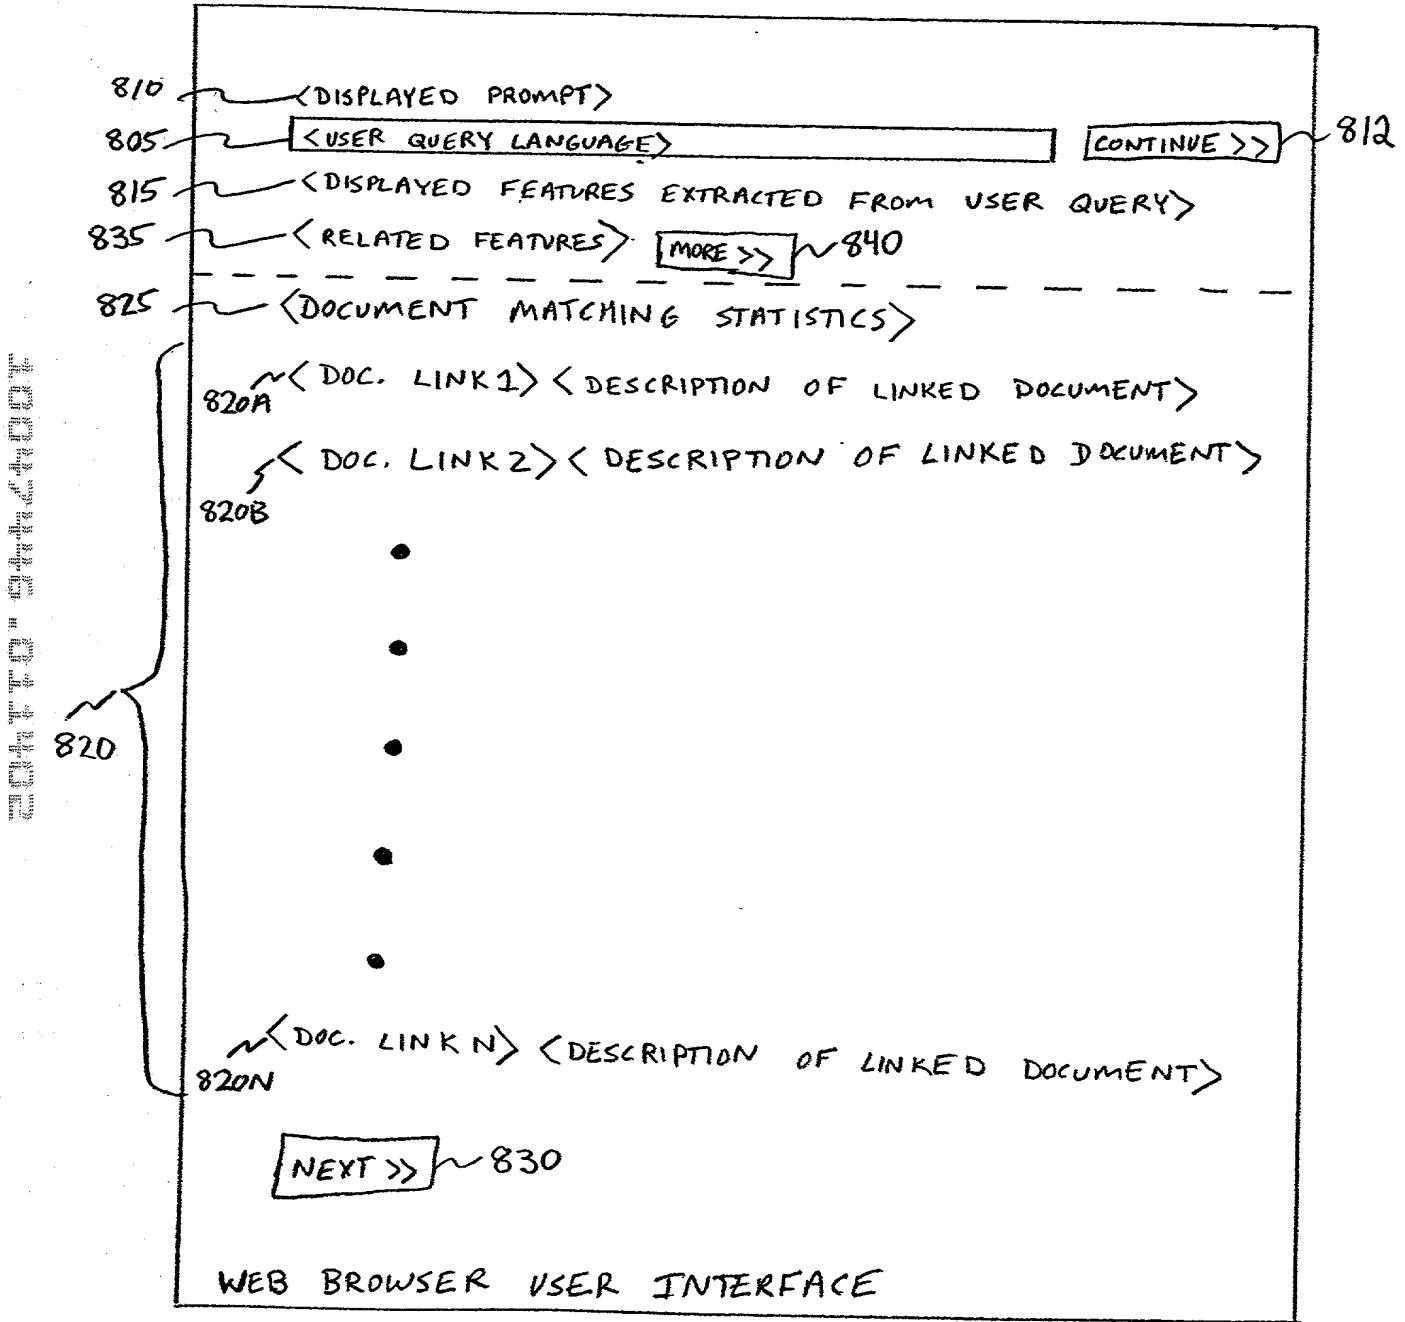 810 <DISPLAYED PROMPT>
805 <USER QUERY LANGUAGE> CONTINUE >> 812
815 <DISPLAYED FEATURES EXTRACTED FROM USER QUERY>
835 <RELATED FEATURES> MORE >> 840
825 <DOCUMENT MATCHING STATISTICS>
<DOC. LINK 1> <DESCRIPTION OF LINKED DOCUMENT>
820A
<DOC. LINK 2> <DESCRIPTION OF LINKED DOCUMENT>
820B
820
<DOC. LINK N> <DESCRIPTION OF LINKED DOCUMENT>
820N
NEXT >> 830
WEB BROWSER USER INTERFACE
10047446.011402